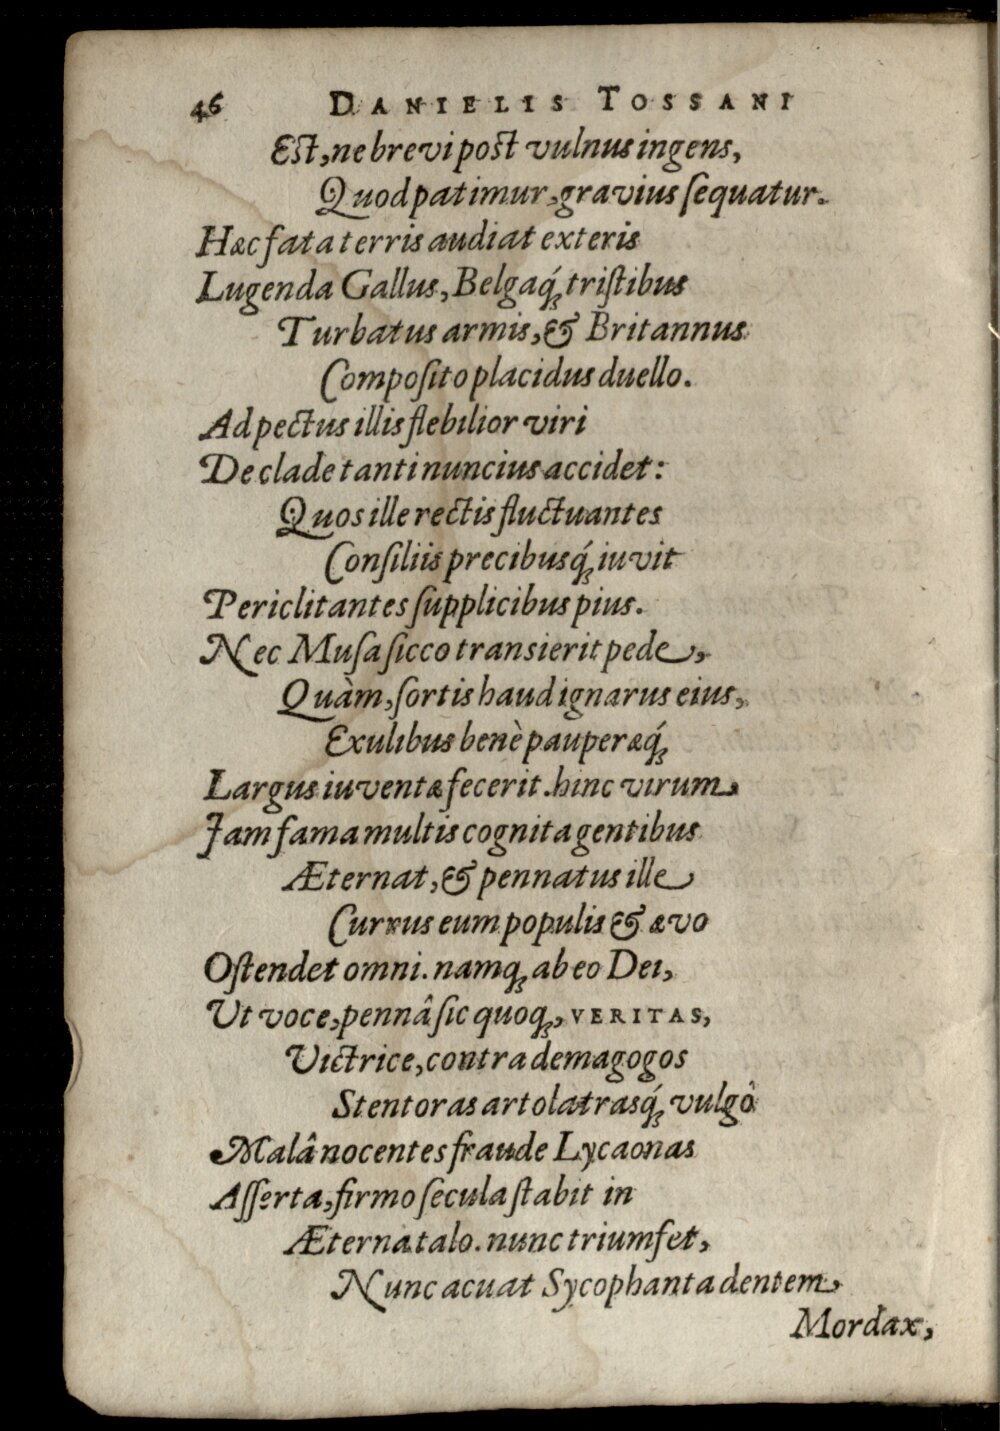 46 DANIELIS TOSSANI
Est, ne brevi post vulnus ingens,
Quod patimur, gravius ſequatur.
Hæc fata terris audiat exteris
Lugenda Gallus, Belgaq́; triſtibus
Turbatus armis, & Britannus
Compoſito placidus duello.
Ad pectus illis flebilior viri
De clade tanti nuncius accidet:
Quos ille rectis fluctuantes
Conſiliis precibusq́; iuvit
Periclitantes ſupplicibus pius.
Nec Muſa ſicco transierit pede,
Quàm, ſortis haud ignarus eius,
Exulibus benè pauperæq́;
Largus iuventæ fecerit. hinc virum
Jam fama multis cognita gentibus
Æternat, & pennatus ille
Currus eum populis & ævo
Oſtendet omni. namq; ab eo Dei,
Ut voce, pennâ ſic quoq;, VERITAS,
Victrice, contra demagogos
Stentoras artolatrasq́; vulgò
Malâ nocentes fraude Lycaonas
Aſſerta, firmo ſecula ſtabit in
Æterna talo. nunc triumfet,
Nunc acuat Sycophanta dentem
Mordax,